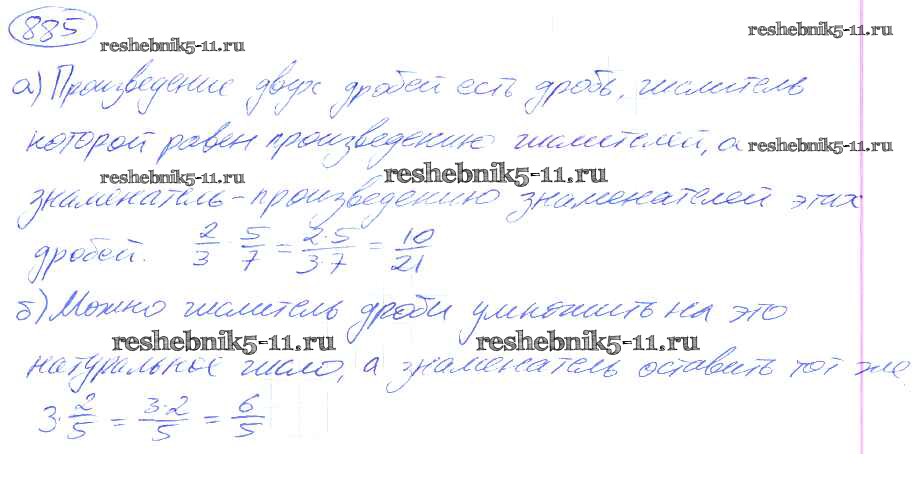 885
reshebnik5-11.ru
reshebnik5-11.ru
а) Произведение двух дробей есть дробь, числитель
которой равен произведению числителей, а
reshebnik5-11.ru
reshebnik5-11.ru
reshebnik5-11.ru
знаменатель - произведению знаменателей этих
дробей. 2/3 · 5/7 = 2·5/3·7 = 10/21
б) Можно числитель дроби умножить на это
reshebnik5-11.ru
reshebnik5-11.ru
натуральное число, а знаменатель оставить тот же
3· 2/5 = 3·2/5 = 6/5